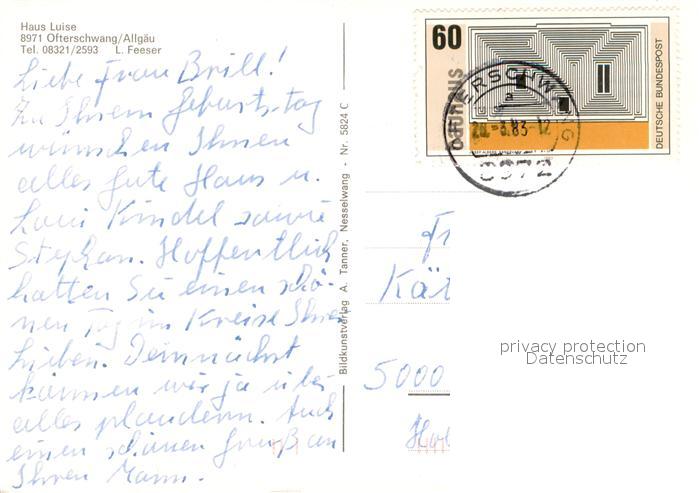 Haus Luise
8971 Ofterschwang/Allgäu
Tel. 08321/2593 L. Feeser
Liebe Frau Brill!
Zu Ihrem Geburtstag
wünschen Ihnen
alles gute Hans u.
Loni Kindel sowie
Stephan. Hoffentlich
hatten Sie einen schö-
nen Tag im Kreise Ihrer
Lieben. Demnächst
können wir ja über
alles plaudern. Auch
einen schönen Gruß an
Ihren Mann.
Bildkunstverlag A. Tanner, Nesselwang - Nr. 5824 C
60
BAUHAUS
DEUTSCHE BUNDESPOST
ERSCHWANG
83-12
8972
Fr
Kät
5000
privacy protection
Datenschutz